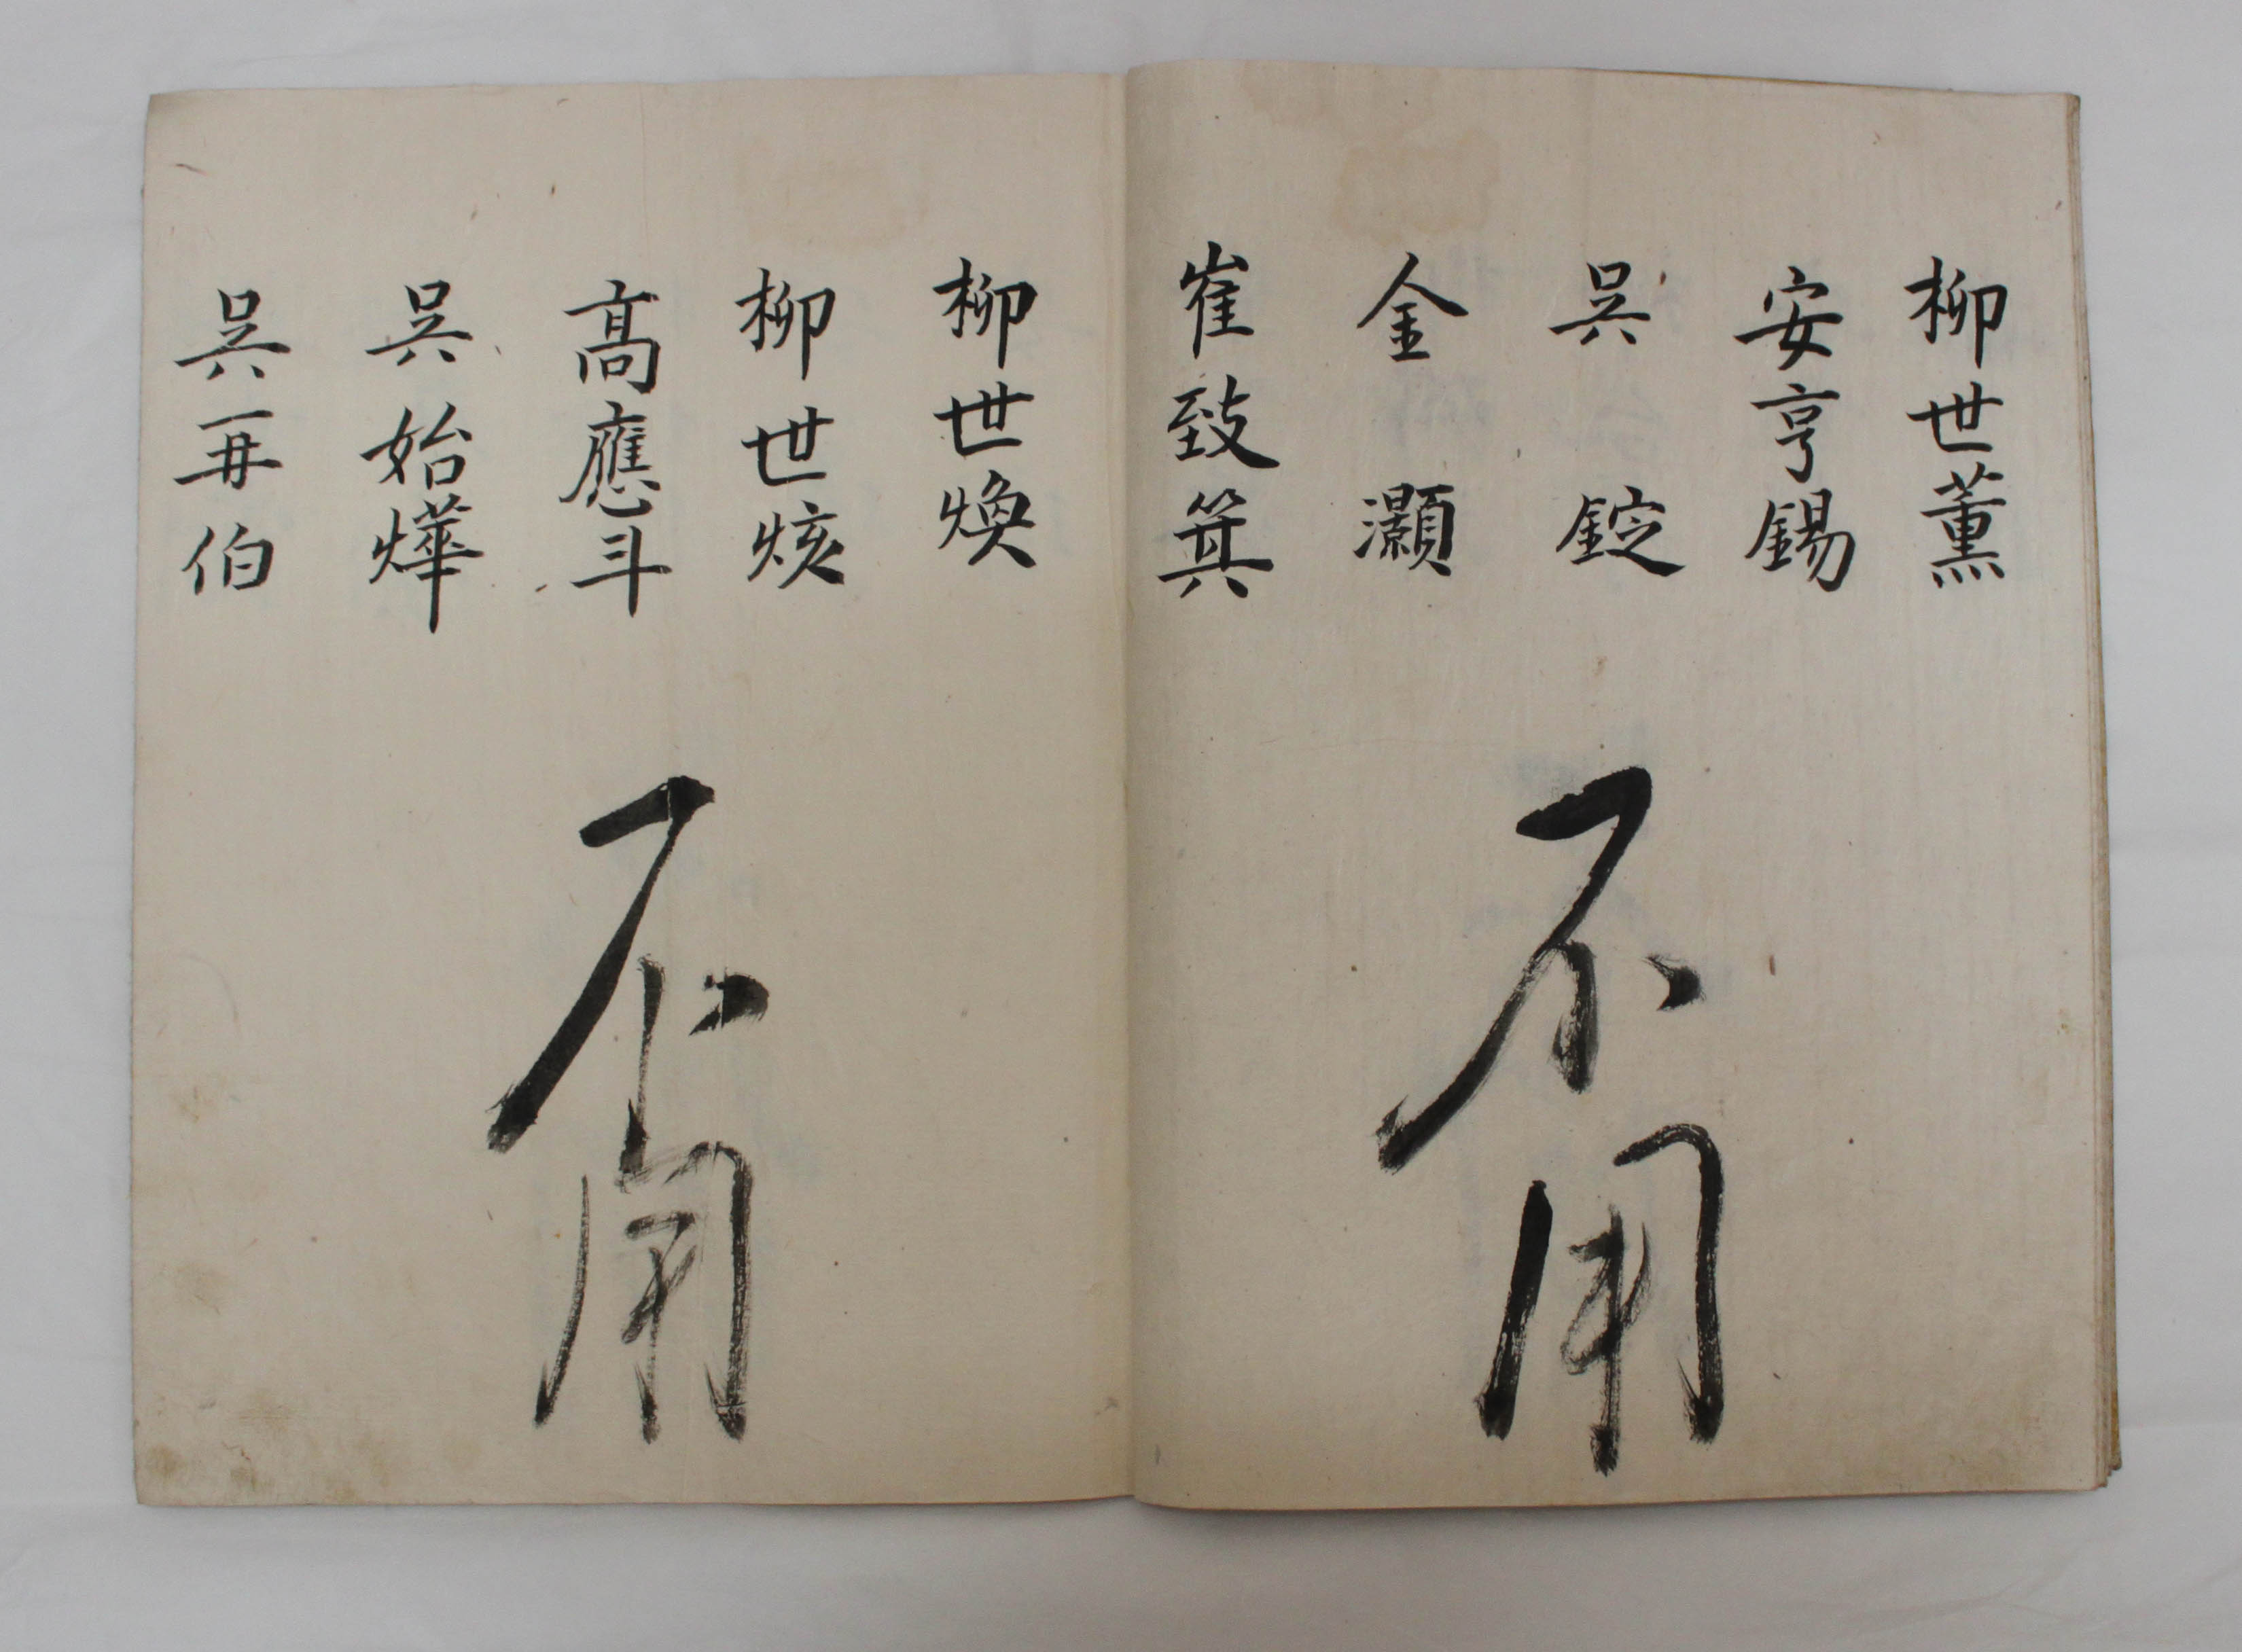 柳世薰
安亨錫
吳錠
金灝
崔致箕
不用
柳世煥
柳世烗
高應斗
吳始燁
吳再伯
不用